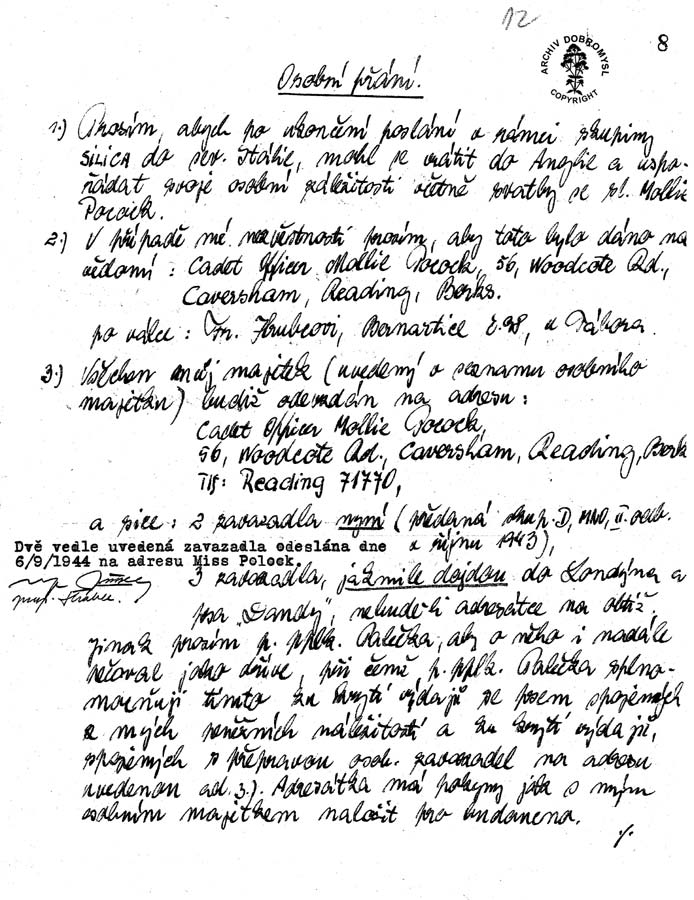 12
8
ARCHIV DOBROMYSL
COPYRIGHT
Osobní přání.
1.) Prosím, abych po ukončení poslání v rámci skupiny
SILICA do sev. Itálie, mohl se vrátit do Anglie a uspo-
řádat svoje osobní záležitosti včetně svatby se sl. Mollie
Pocock.
2.) V případě mé nezvěstnosti prosím, aby toto bylo dáno na
vědomí: Cadet Officer Mollie Pocock, 56, Woodcote Rd.,
Caversham, Reading, Berks.
po válce: Fr. Hrubcovi, Bernartice č. 98, u Tábora.
3.) Všechen můj majitek (uvedený v seznamu osobního
majitku) budiž odevzdán na adresu:
Cadet Officer Mollie Pocock,
56, Woodcote Rd., Caversham, Reading, Berk
Tlf: Reading 71770,
a sice: 2 zavazadla nyní (předaná skup. D, MNO, II. odb.
v říjnu 1943),
Dvě vedle uvedená zavazadla odeslána dne
6/9/1944 na adresu Miss Polock.
3 zavazadla, jakmile dojdou do Londýna a
psa "Dandy", nebude-li adresátce na obtíž.
Jinak prosím p. pplk. Palečka, aby o něho i nadále
pečoval jako dříve, při čemž p. pplk. Palečka zplno-
mocňuji tímto ku krytí výdajů se psem spojených
z mých peněžních náležitostí a ku krytí výdajů,
spojených s přepravou osob. zavazadel na adresu
uvedenou ad. 3.). Adresátka má pokyny jak s mým
osobním majitkem naložit pro budoucno.
./.